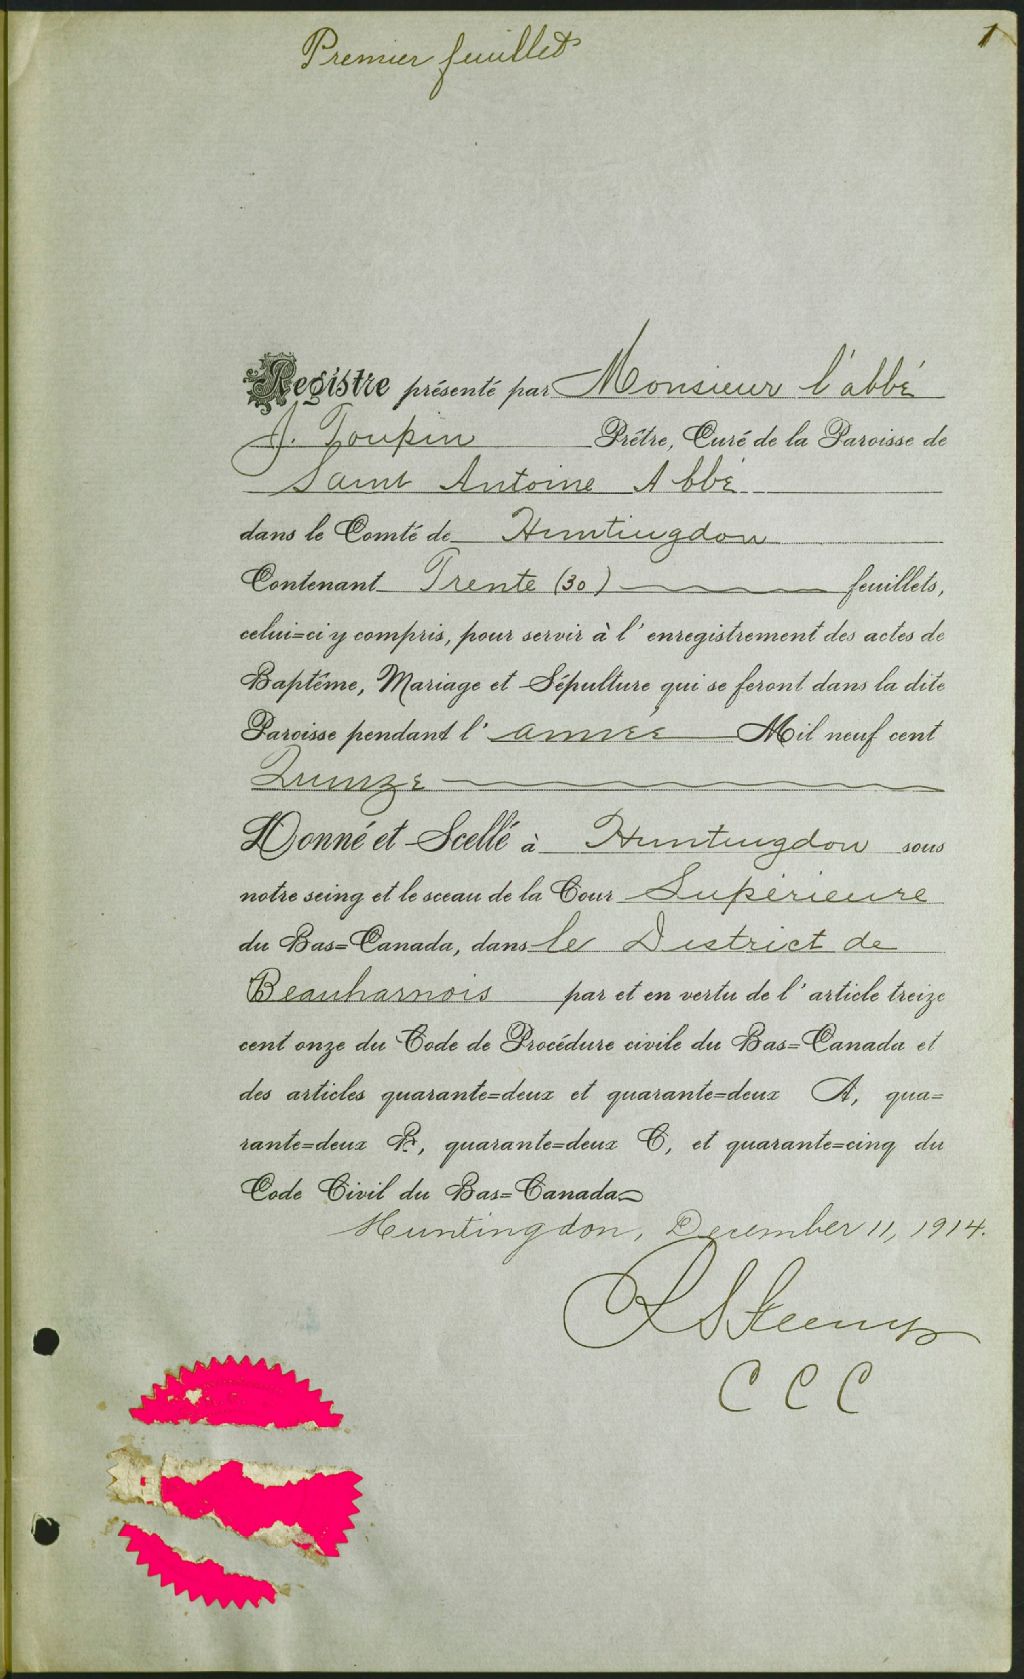 Premier feuillet
1
Registre présenté par Monsieur l'abbé
J. Toupin Prêtre, Curé de la Paroisse de
Saint Antoine Abbé
dans le Comté de Huntingdon
Contenant Trente (30) feuillets,
celui=ci y compris, pour servir à l'enregistrement des actes de
Baptême, Mariage et Sépulture qui se feront dans la dite
Paroisse pendant l'année Mil neuf cent
Quinze
Donné et Scellé à Huntingdon sous
notre seing et le sceau de la Cour Supérieure
du Bas=Canada, dans le District de
Beauharnois par et en vertu de l'article treize
cent onze du Code de Procédure civile du Bas=Canada et
des articles quarante=deux et quarante=deux A, qua=
rante=deux B, quarante=deux C, et quarante=cinq du
Code Civil du Bas=Canada
Huntingdon, December 11, 1914.
C C C